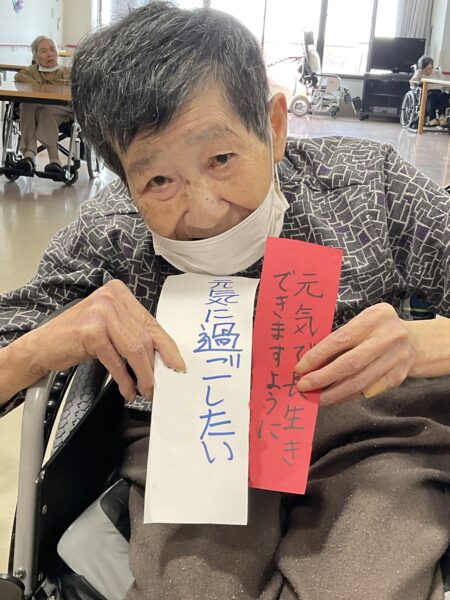 元気で長生き
できますように
元気に過ごしたい